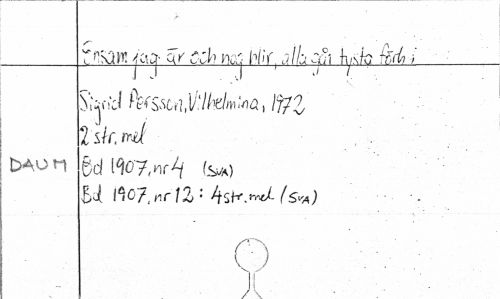 Ensam jag är och nog blir, alla går tysta förbi
Sigrid Persson, Vilhelmina, 1972
2 str, mel
DAUM Bd 1907, nr 4 (SVA)
Bd 1907, nr 12: 4 str. mel (SVA)